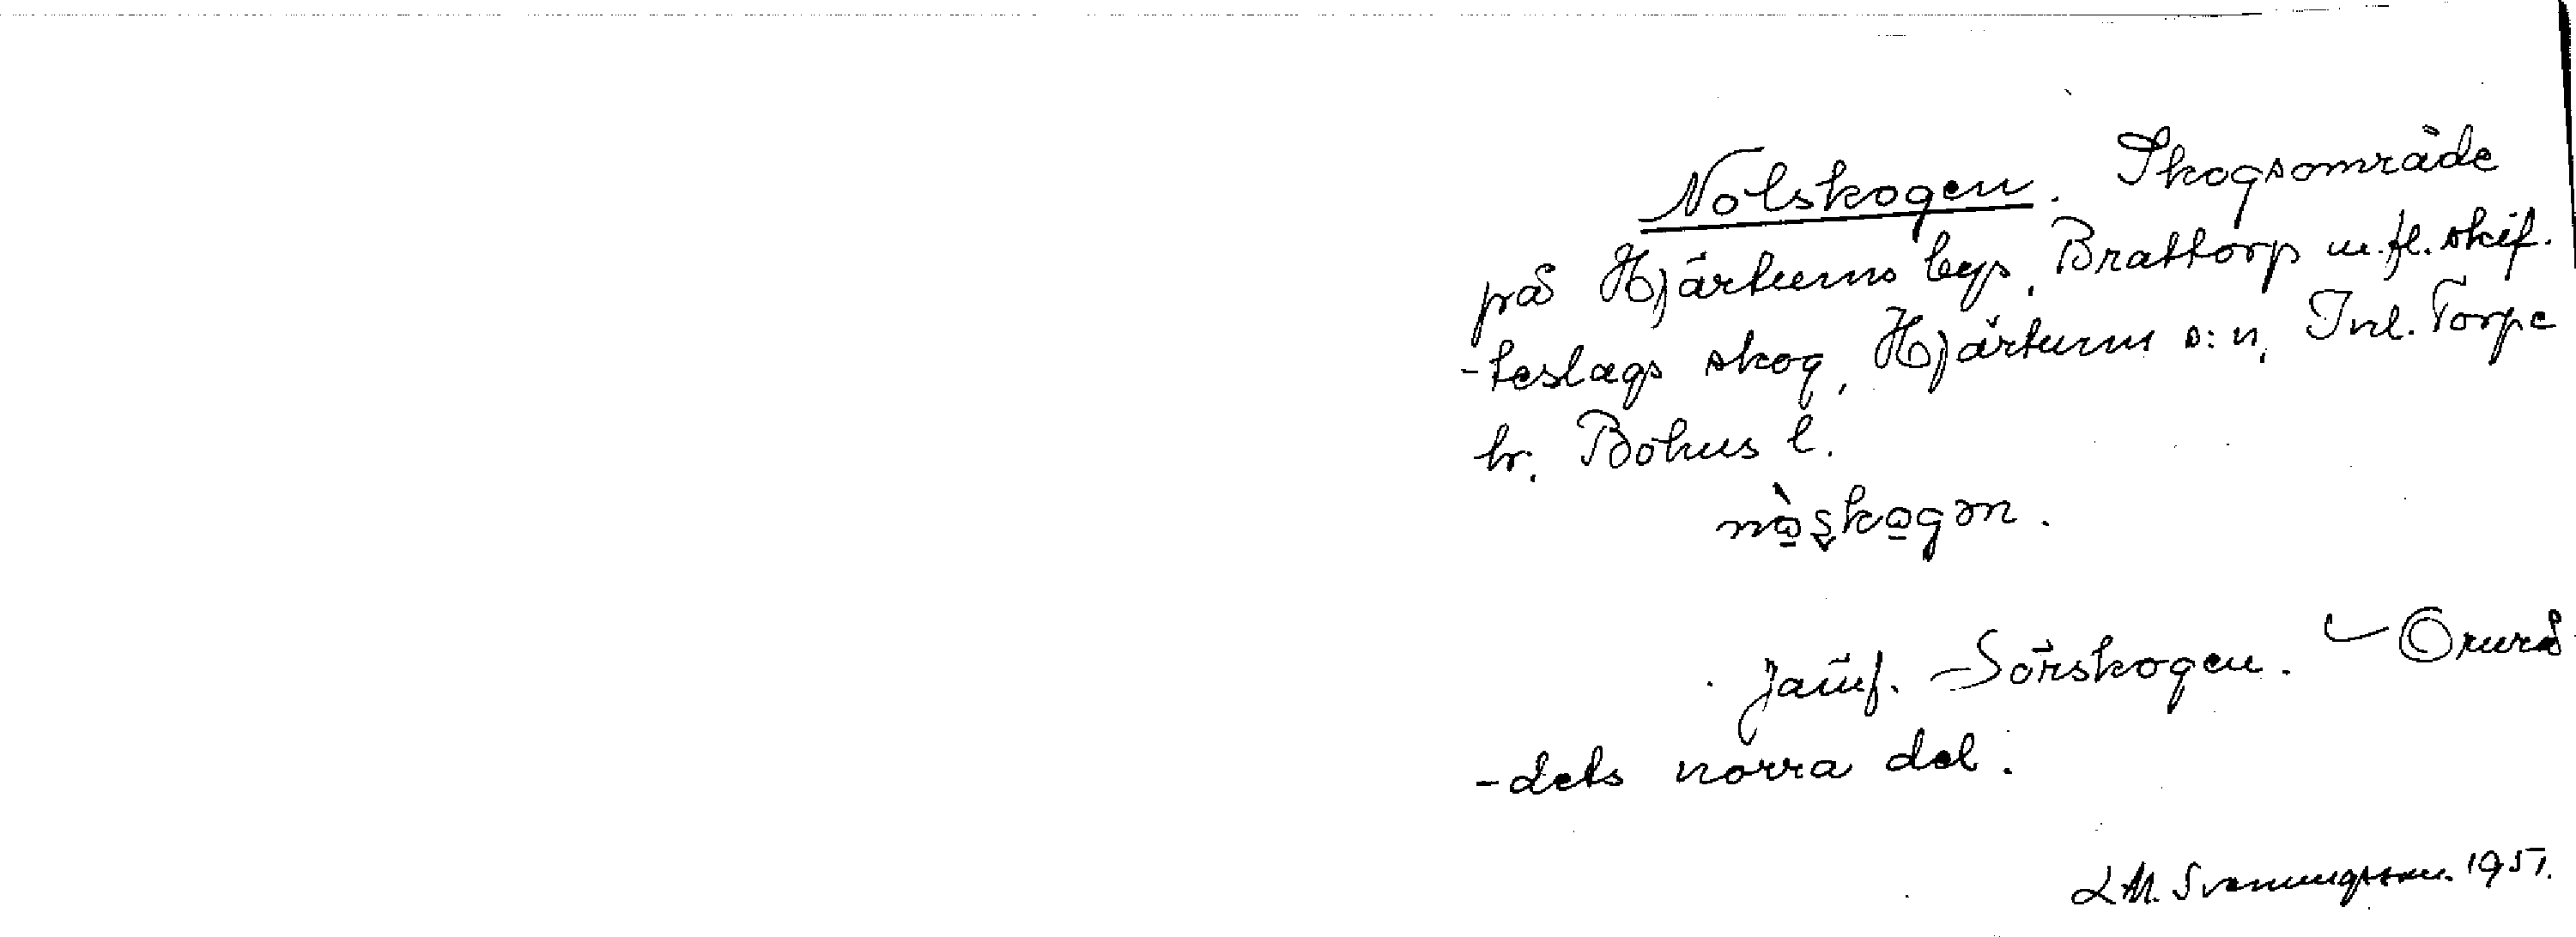 Nolskogen. Skogsområde
på Hjärtums bys, Brattorp m.fl. skif-
-teslags skog, Hjärtums s:n, Inl. Torpe
hr. Bohus l.
nò̠ʂko̠gən.
Jämf. Sörskogen. Områ-
-dets norra del.
L M. Svenungsson. 1951.